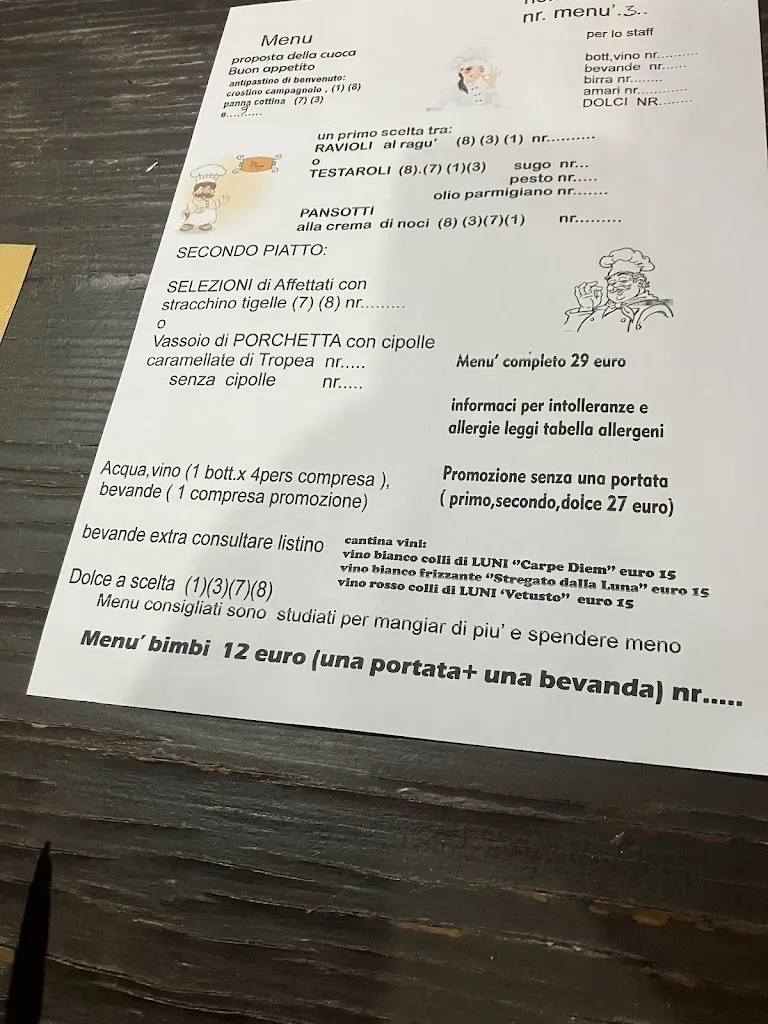 nr. menu'.3..
per lo staff
bott,vino nr..........
bevande nr......
birra nr........
amari nr............
DOLCI NR........
Menu
proposta della cuoca
Buon appetito
antipastino di benvenuto:
crostino campagnolo , (1) (8)
panna cottina (7) (3)
e..........
un primo scelta tra:
RAVIOLI al ragu' (8) (3) (1) nr..........
o
TESTAROLI (8).(7) (1)(3) sugo nr...
pesto nr.....
olio parmigiano nr.......
PANSOTTI
alla crema di noci (8) (3)(7)(1) nr.........
SECONDO PIATTO:
SELEZIONI di Affettati con
stracchino tigelle (7) (8) nr.........
o
Vassoio di PORCHETTA con cipolle
caramellate di Tropea nr.....
senza cipolle nr.....
Menu' completo 29 euro
informaci per intolleranze e
allergie leggi tabella allergeni
Acqua,vino (1 bott.x 4pers compresa ),
bevande ( 1 compresa promozione)
Promozione senza una portata
( primo,secondo,dolce 27 euro)
bevande extra consultare listino
cantina vini:
vino bianco colli di LUNI "Carpe Diem" euro 15
vino bianco frizzante "Stregato dalla Luna" euro 15
vino rosso colli di LUNI 'Vetusto" euro 15
Dolce a scelta (1)(3)(7)(8)
Menu consigliati sono studiati per mangiar di piu' e spendere meno
Menu' bimbi 12 euro (una portata+ una bevanda) nr.....